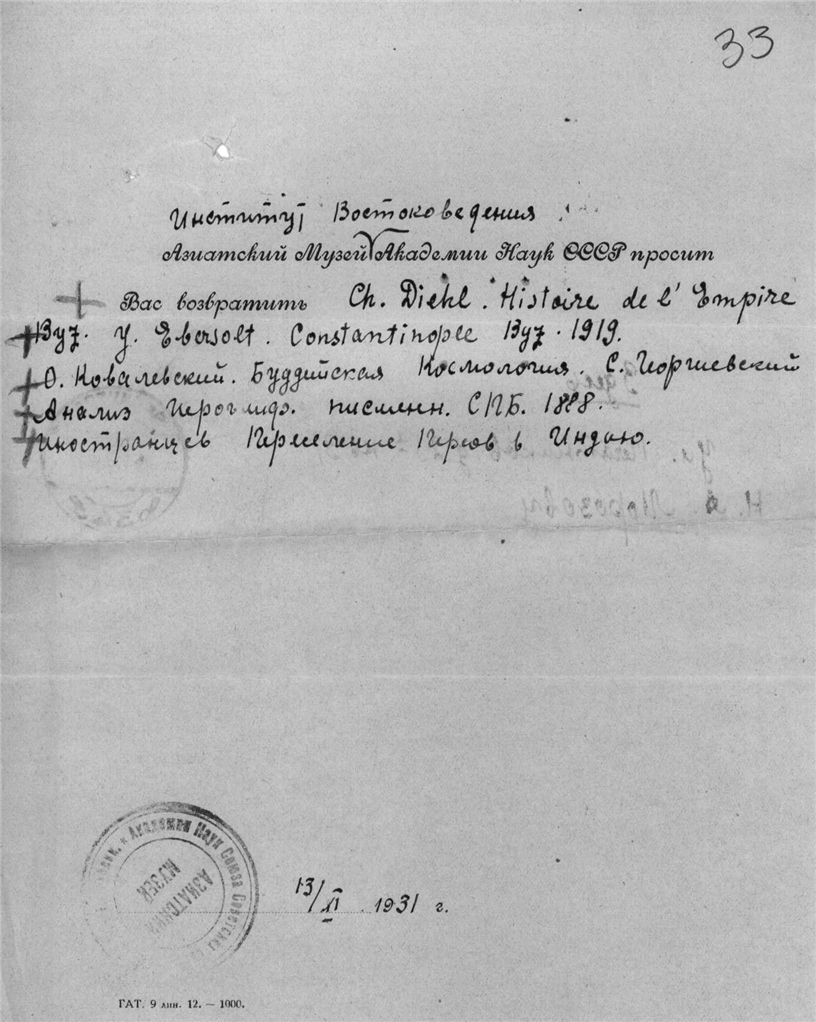 33
Институт Востоковедения
Азиатский Музей Академии Наук СССР просит
Вас возвратить Ch. Diehl. Histoire de l' Empire
Byz. J. Ebersolt. Constantinople Byz. 1919.
О. Ковалевский. Буддийская Космология. С. Георгиевский
Анализ Иероглиф. писменн. СПБ. 1888.
Иностранцев Переселение Персов в Индию.
Академии Наук Союза Советских
АЗИАТСКИЙ
МУЗЕЙ
13/XI 1931 г.
ГАТ. 9 лин. 12. – 1000.